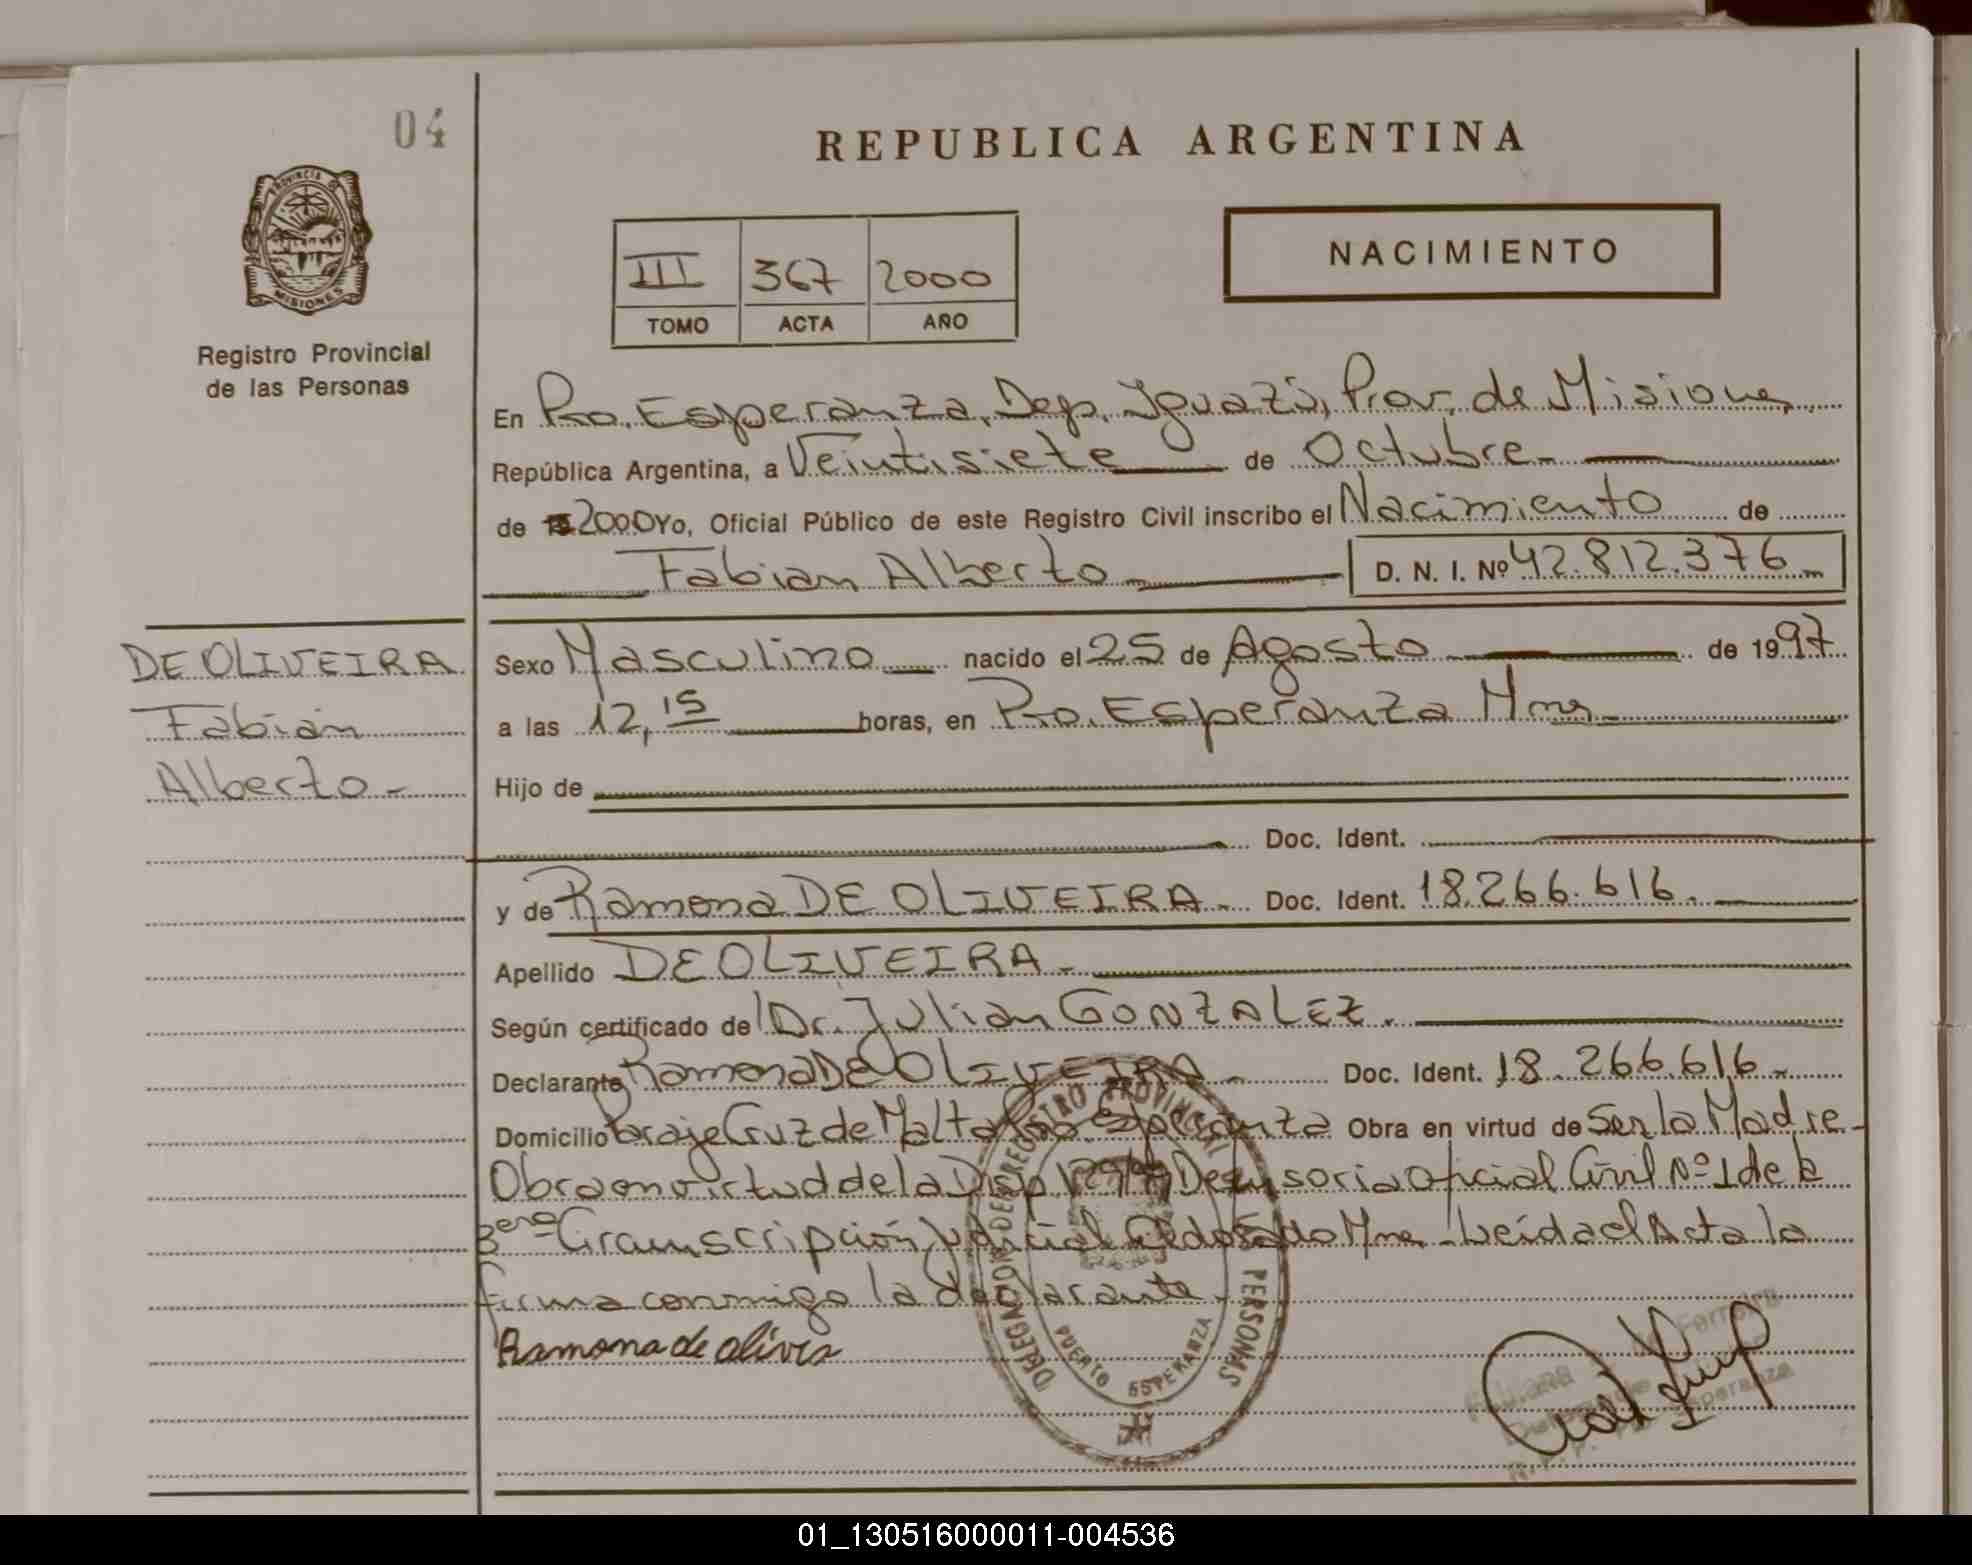 04
REPUBLICA ARGENTINA
PROVINCIA DE
MISIONES
Registro Provincial
de las Personas
NACIMIENTO
III 367 2000
TOMO ACTA AÑO
En Pto. Esperanza, Dep. Iguazú, Prov. de Misiones
República Argentina, a Veintisiete de Octubre
de 2000 Yo, Oficial Público de este Registro Civil inscribo el Nacimiento de
Fabian Alberto D. N. I. Nº 42.812.376
DE OLIVEIRA
Fabián
Alberto
Sexo Masculino nacido el 25 de Agosto de 1997
a las 12,15 horas, en Pto. Esperanza Mnes
Hijo de
Doc. Ident.
y de Ramona DE OLIVEIRA Doc. Ident. 18.266.616
Apellido DE OLIVEIRA
Según certificado de Dr. Julian GONZALEZ
Declarante Ramona DE OLIVEIRA Doc. Ident. 18.266.616
Domicilio Paraje Cruz de Malta Pto. Esperanza Obra en virtud de Ser la Madre
Obra en virtud de la Disp. Defensoria Oficial Civil Nº 1 de la
3era Circunscripción Judicial Mnes Leída el Acta la
firma conmigo la declarante
Ramona de olivera
DELEGACION DE REGISTRO PROVINCIAL PERSONAS
PUERTO ESPERANZA
Ferreira
01_130516000011-004536